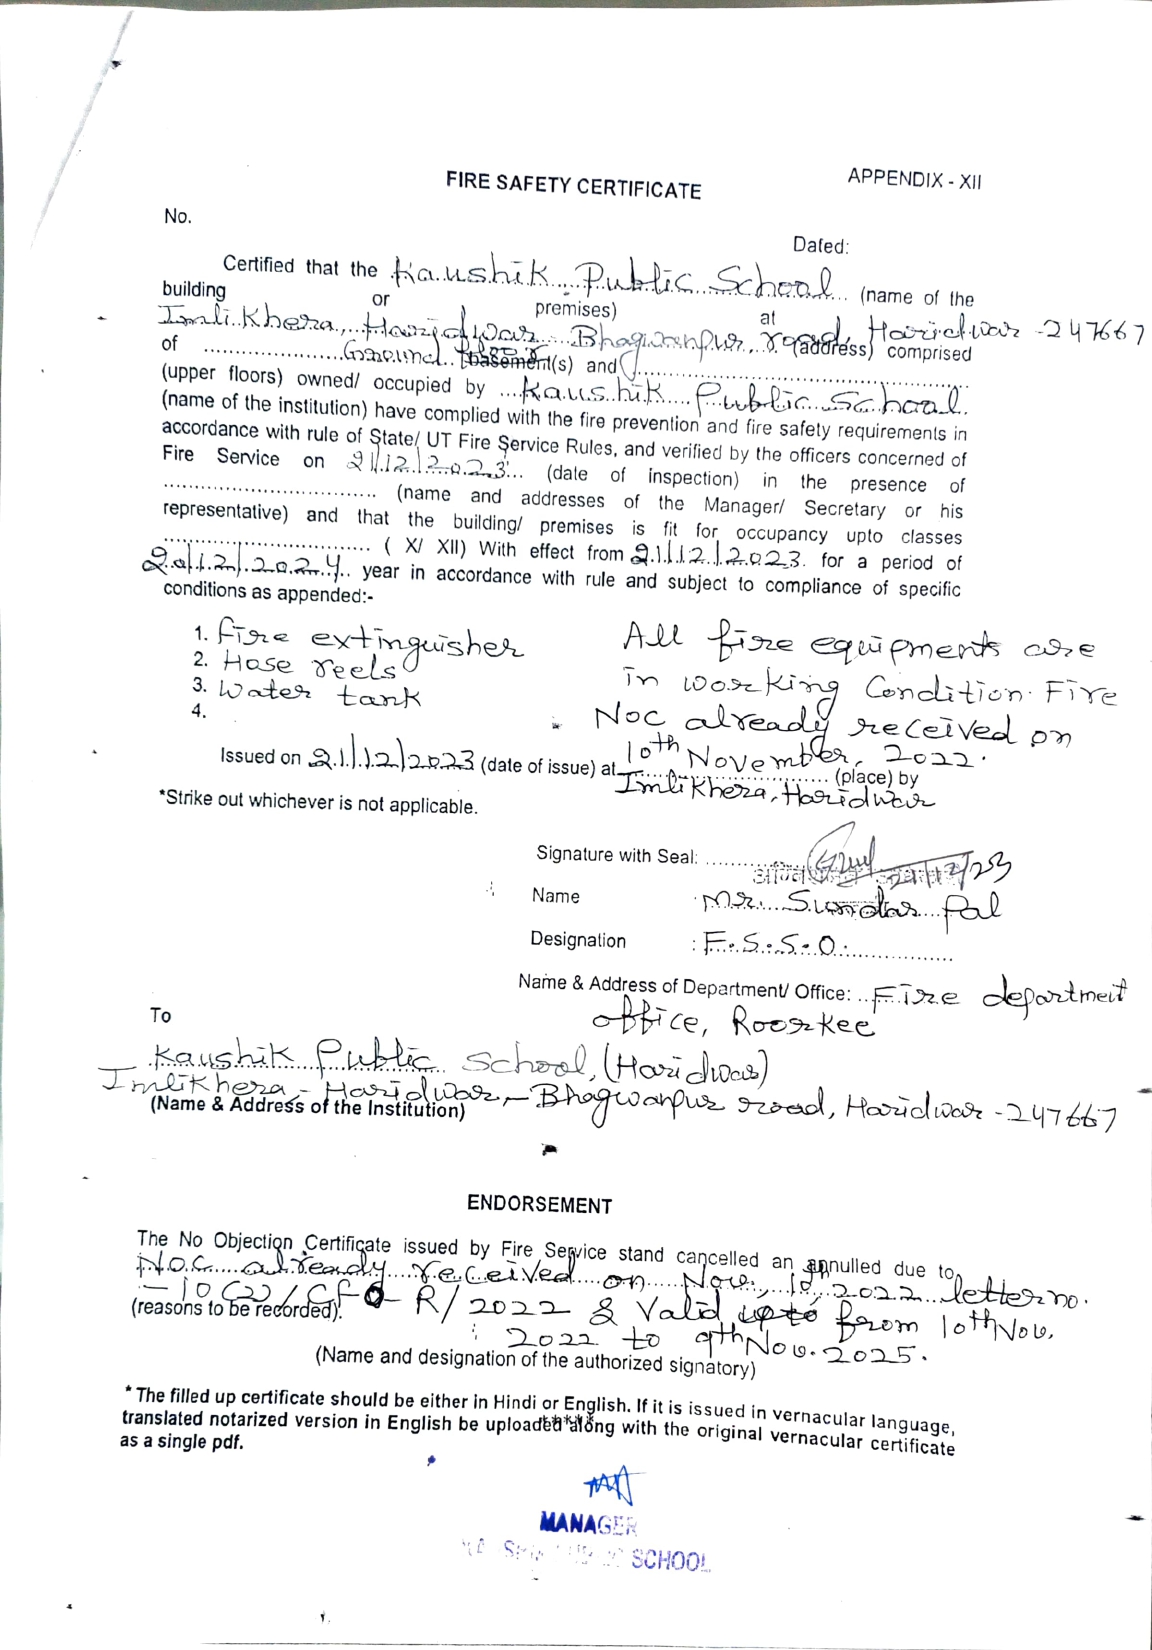 APPENDIX - XII
FIRE SAFETY CERTIFICATE
No.
Dated:
Certified that the Kaushik Public School (name of the
building or premises) at
Imli Khera, Haridwar Bhagwanpur, road, Haridwar - 247667
of ..................... Ground floor basement(s) and ..................... (address) comprised
(upper floors) owned/ occupied by ... Kaushik Public School.
(name of the institution) have complied with the fire prevention and fire safety requirements in
accordance with rule of State/ UT Fire Service Rules, and verified by the officers concerned of
Fire Service on 21/12/2023 ... (date of inspection) in the presence of
..................................... (name and addresses of the Manager/ Secretary or his
representative) and that the building/ premises is fit for occupancy upto classes
..................................... ( X/ XII) With effect from 21/12/2023. for a period of
20/12/2024.. year in accordance with rule and subject to compliance of specific
conditions as appended:-
1. Fire extinguisher
2. Hose reels
3. Water tank
4.
All fire equipments are
in working Condition. Fire
Noc already received on
10th November, 2022.
Issued on 21/12/2023 (date of issue) at ..................... (place) by
Imlikhera, Haridwar
*Strike out whichever is not applicable.
Signature with Seal: ............... 21/12/23
Name Mr. Sundar Pal
Designation : F.S.S.O. .....................
Name & Address of Department/ Office: ..Fire department
office, Roorkee
To
Kaushik Public School, (Haridwar)
Imlikhera,- Haridwar,- Bhagwanpur road, Haridwar - 247667
(Name & Address of the Institution)
ENDORSEMENT
The No Objection Certificate issued by Fire Service stand cancelled an annulled due to
N.O.C. already received on Nov., 10, 2022 letter no.
- R/2022 & Valid upto from 10th Nov.
(reasons to be recorded).
2022 to 9th Nov. 2025.
(Name and designation of the authorized signatory)
* The filled up certificate should be either in Hindi or English. If it is issued in vernacular language,
translated notarized version in English be uploaded along with the original vernacular certificate
as a single pdf.
MANAGER
SCHOOL